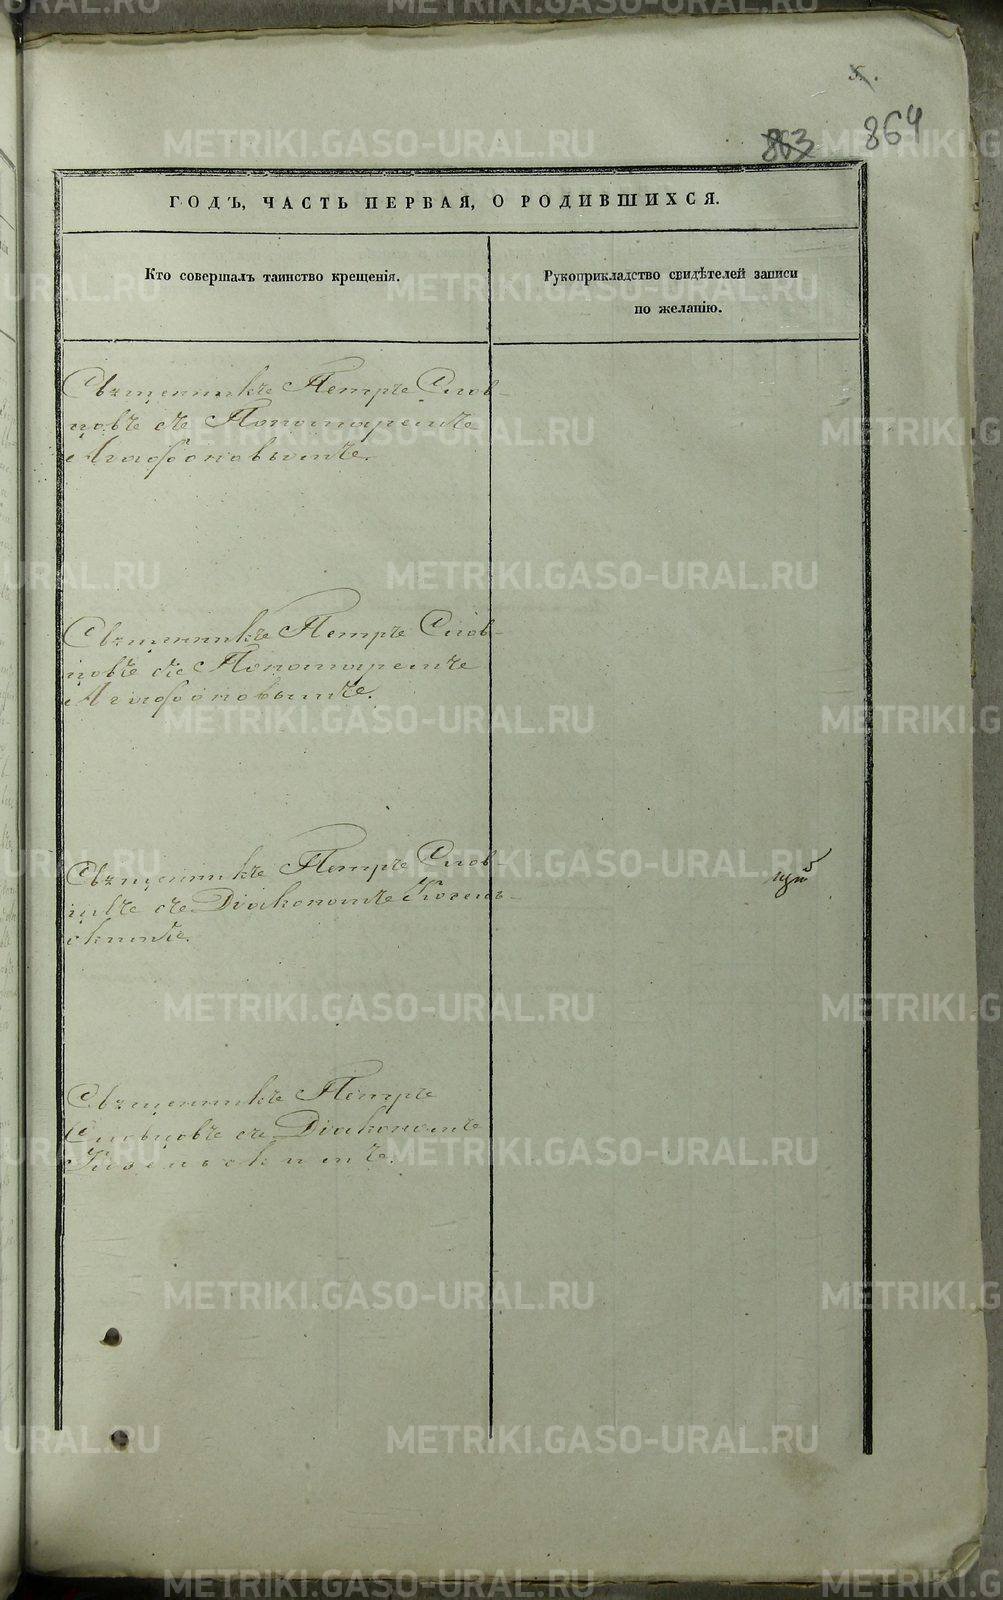 5.
863 864
ГОДЪ, ЧАСТЬ ПЕРВАЯ, О РОДИВШИХСЯ.
Кто совершалъ таинство крещенія.
Рукоприкладство свидѣтелей записи
по желанію.
Священникъ Петръ Слов-
цовъ съ Пономаремъ
Агафоновымъ.
Священникъ Петръ Слов-
цовъ съ Пономаремъ
Агафоновымъ.
Священникъ Петръ Слов-
цовъ съ Діакономъ Козель-
скимъ.
цій
Священникъ Петръ
Словцовъ съ Діакономъ
Козельскимъ.
METRIKI.GASO-URAL.RU